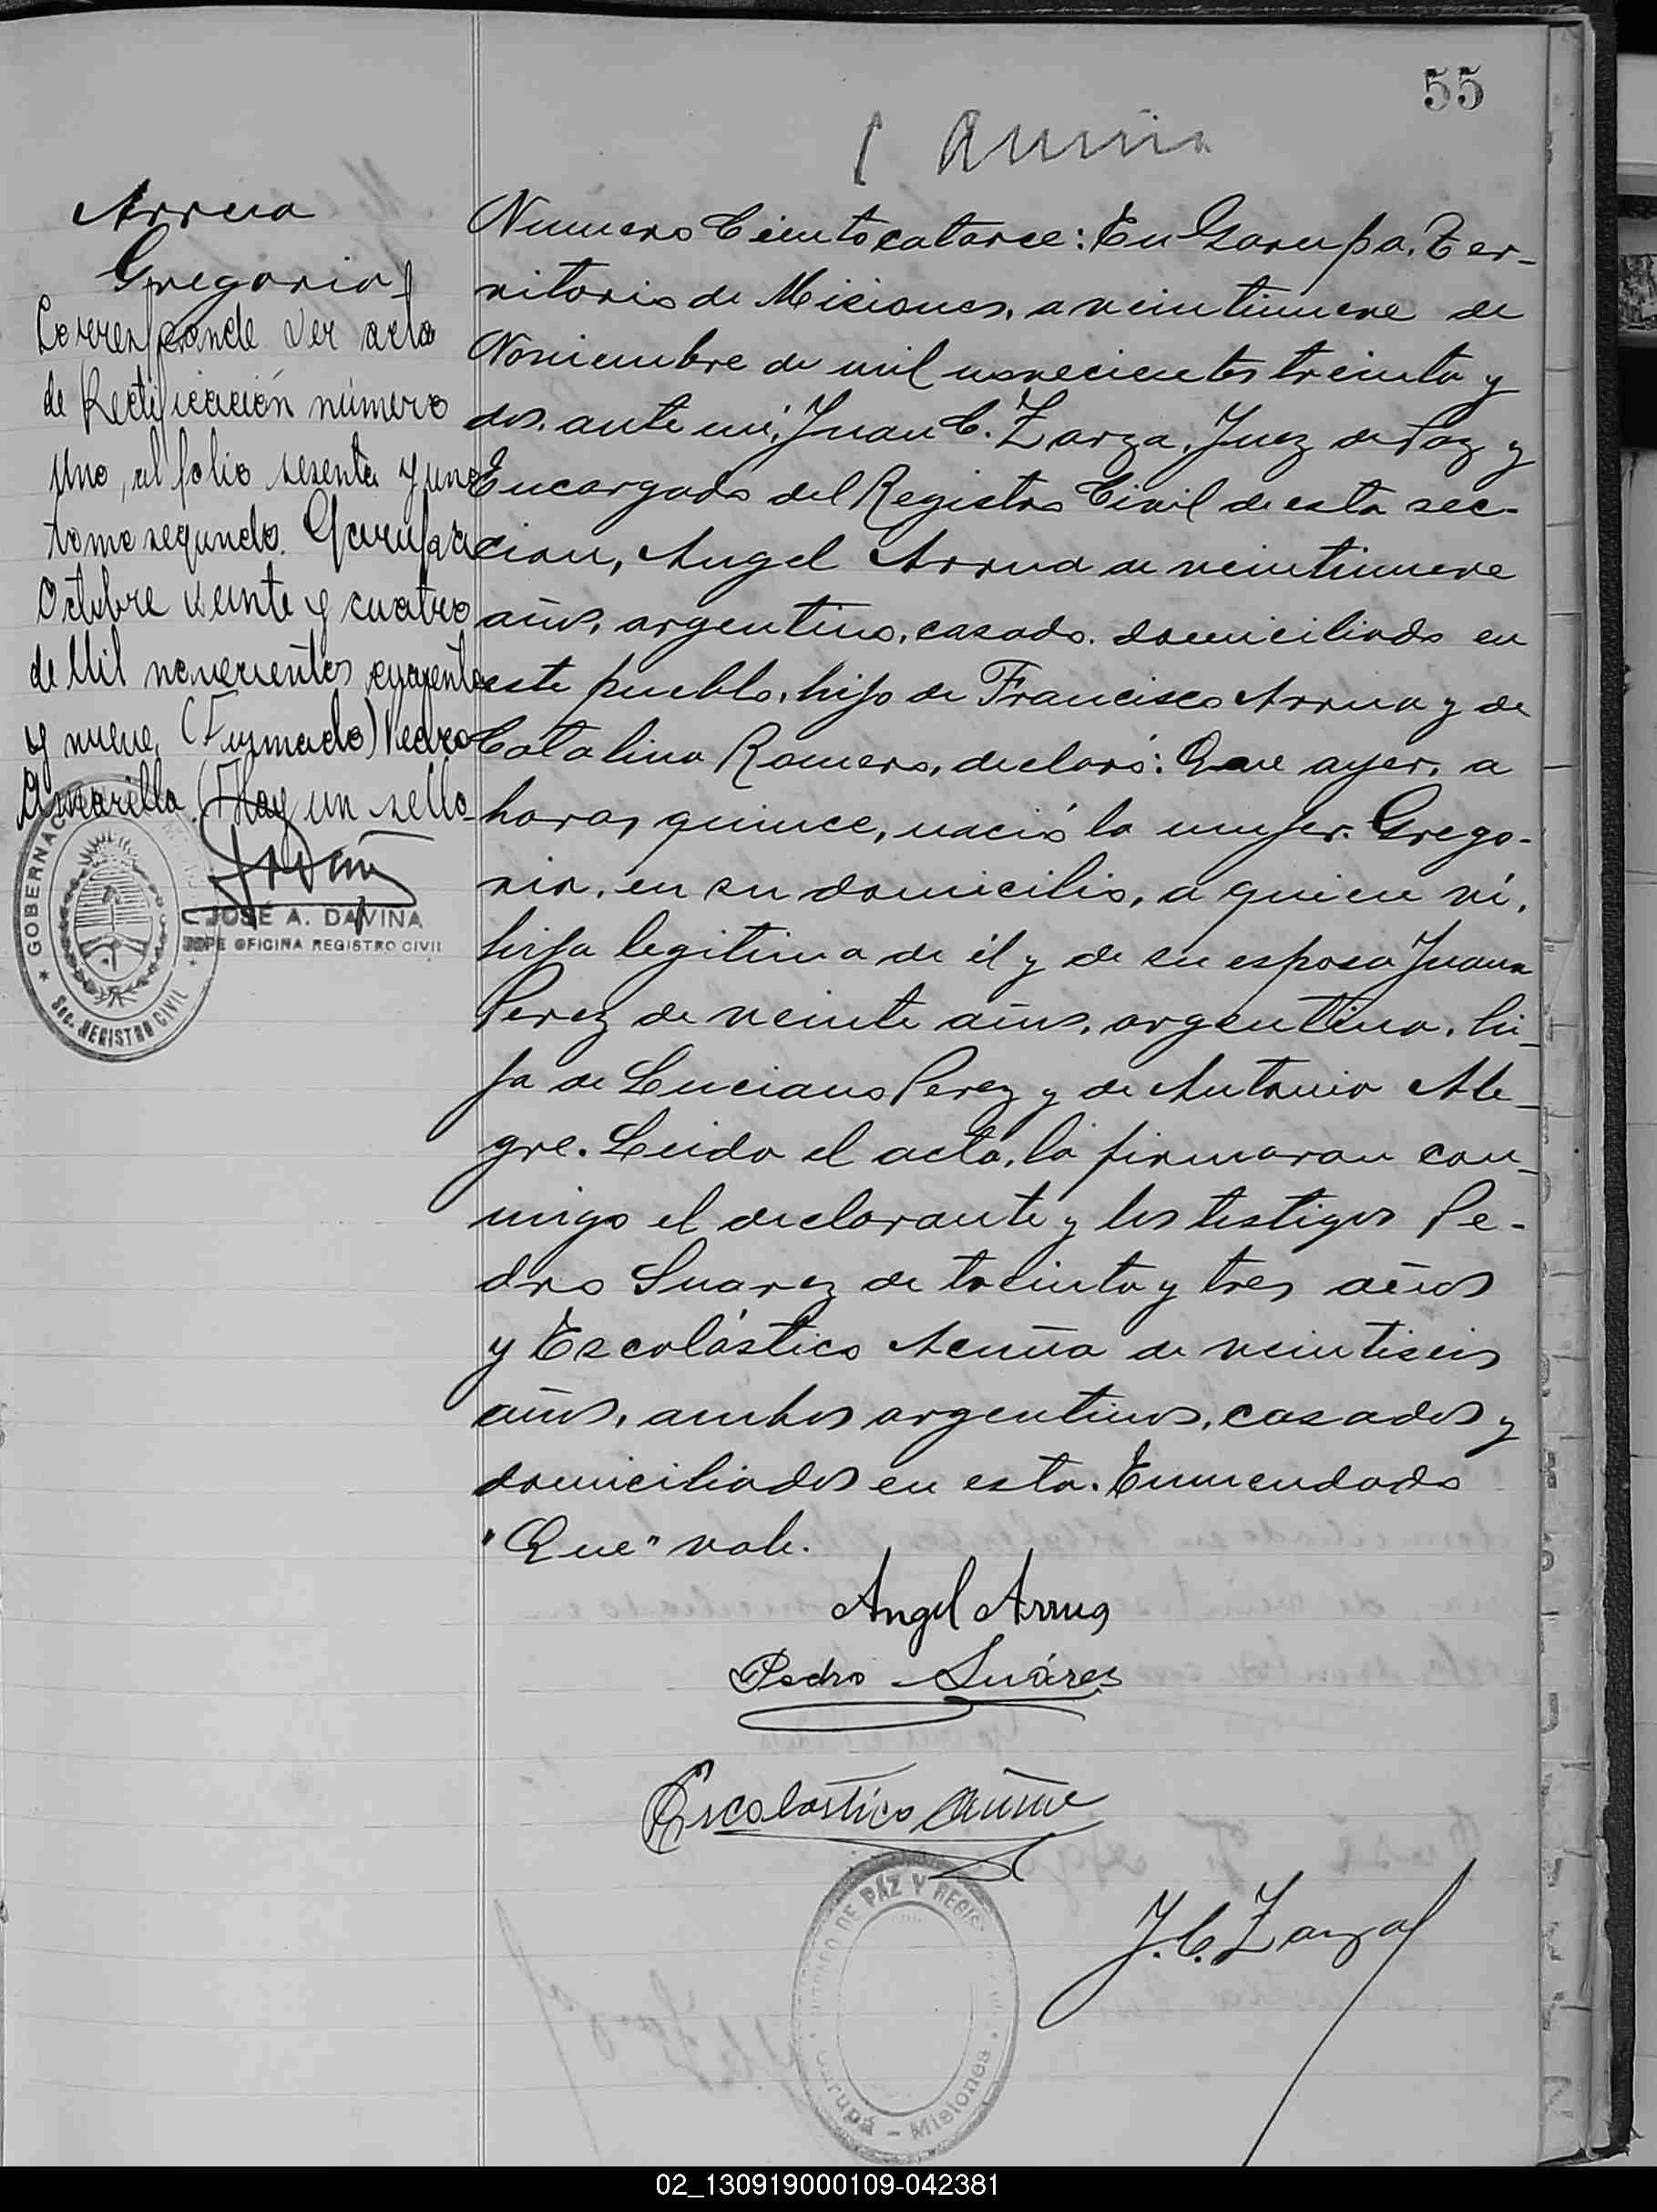 55
Arrua
Gregoria
Corresponde ver acta
de Rectificación número
uno, al folio sesenta y uno
tomo segundo. Garupá a
Octubre veinte y cuatro
de Mil novecientos cuarenta
y nueve (Firmado) Pedro
Amarilla. (Hay un sello
JOSÉ A. DAVIÑA
JEFE OFICINA REGISTRO CIVIL
GOBERNAC
Sec. REGISTRO CIVIL
Numero Ciento catorce: En Garupa, Ter-
ritorio de Misiones, a veintinueve de
Noviembre de mil novecientos treinta y
dos, ante mi, Juan C. Zarza, Juez de Paz y
Encargado del Registro Civil de esta sec-
cion, Angel Arrua de veintinueve
años, argentino, casado, domiciliado en
este pueblo, hijo de Francisco Arrua y de
Catalina Romero, declaró: Que ayer, a
horas quince, nació la mujer: Grego-
ria, en su domicilio, a quien ví,
hija legitima de él y de su esposa Juana
Perez de veinte años, argentina, hi-
ja de Luciano Perez y de Antonia Ale-
gre. Leida el acta, la firmaron con-
migo el declarante y los testigos Pe-
dro Suarez de treinta y tres años
y Escolástico Acuña de veintiseis
años, ambos argentinos, casados y
domiciliados en esta. Enmendado
"Que" vale.
Angel Arrua
Pedro Suárez
Escolastico Acuña
J. C. Zarza
DE PAZ Y REGIS
Garupá - Misiones
02_130919000109-042381